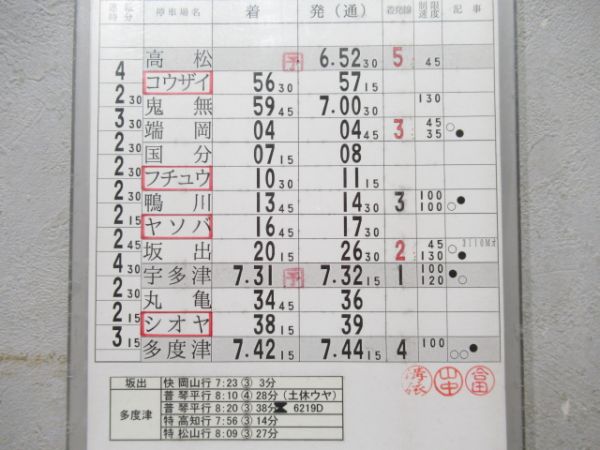 運転時分 停車場名 着 発（通） 着発線 制限速度 記事
高松 予 6.52 30 5 45
4
コウザイ 56 30 57 15
2 30
鬼無 59 45 7.00 30 130
3 30
端岡 04 04 45 3 45 35
2 30
国分 07 15 08
2 15
フチュウ 10 30 11 15
2 30
鴨川 13 45 14 30 3 100 100
2 15
ヤソバ 16 45 17 30
2 45
坂出 20 15 26 30 2 45 130 3110M
4 30
宇多津 7.31 予 7.32 15 1 100 120
2 30
丸亀 34 45 36
2 15
シオヤ 38 15 39
3 15
多度津 7.42 15 7.44 15 4 100
坂出 快 岡山行 7:23 ③ 3分
多度津 普 琴平行 8:10 ④ 28分（土休ウヤ）
普 琴平行 8:20 ③ 38分 6219D
特 高知行 7:56 ③ 14分
特 松山行 8:09 ③ 27分